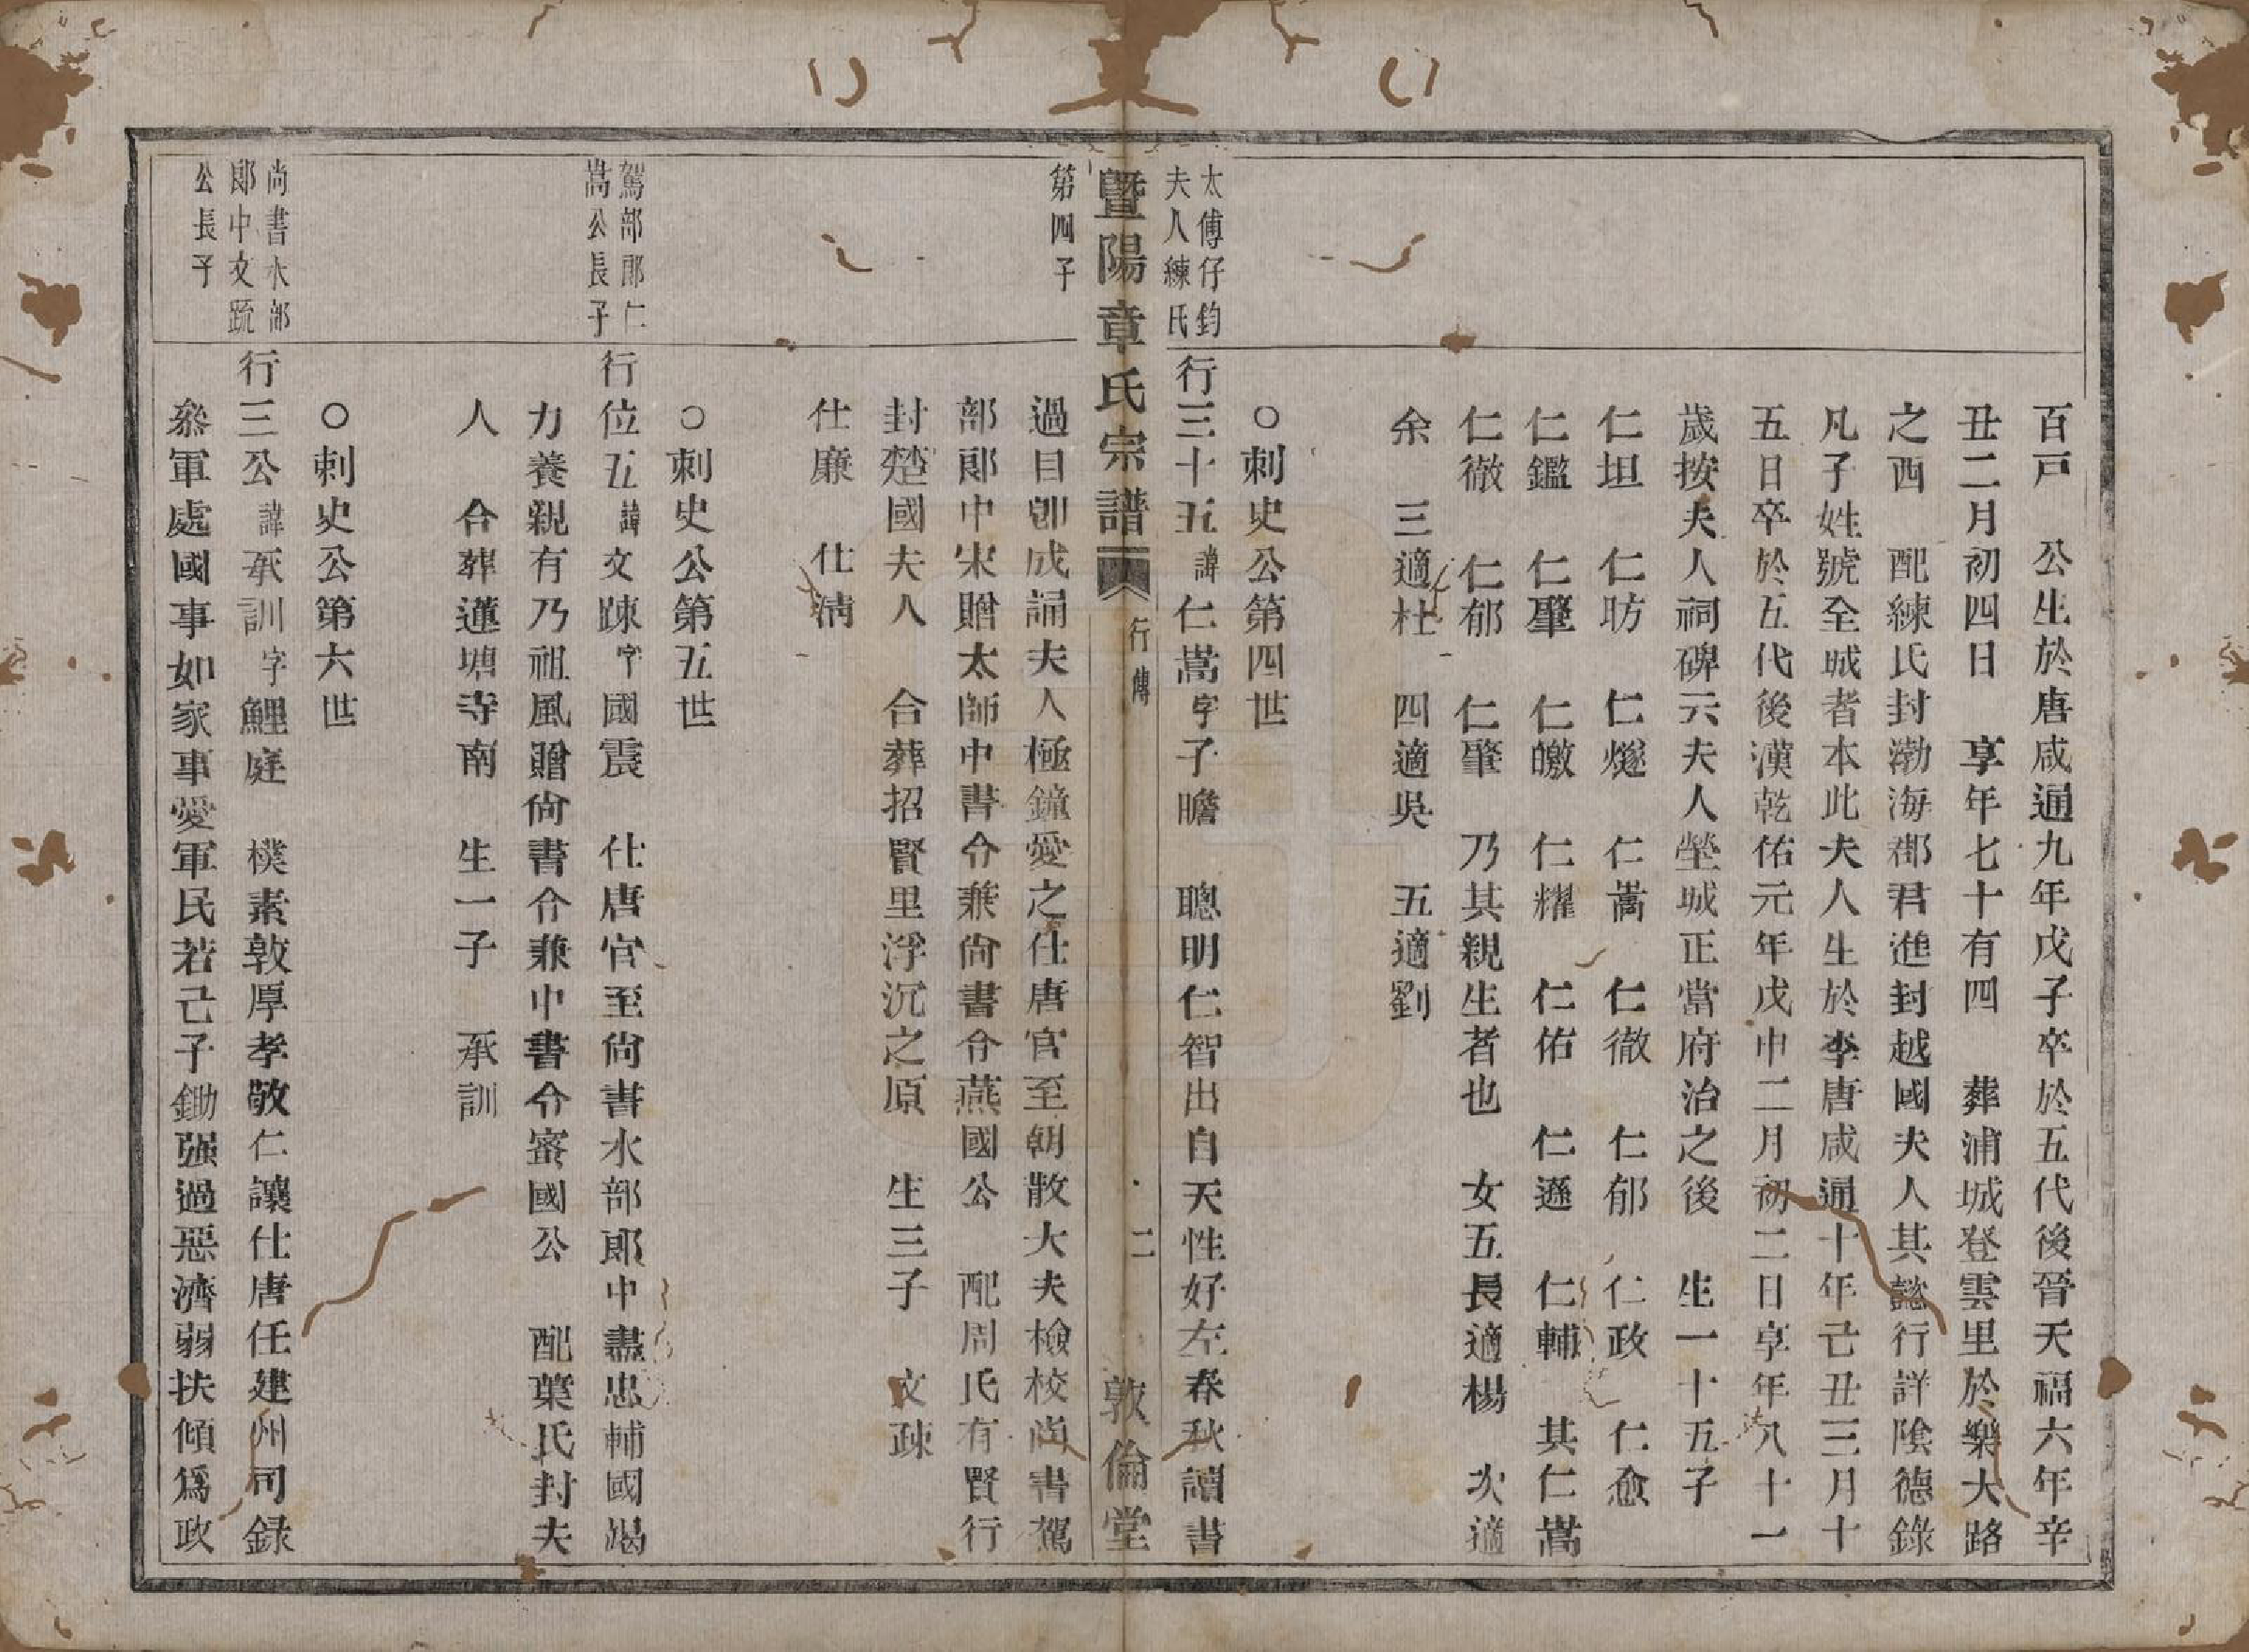 百戸　公生於唐咸通九年戊子卒於五代後晉天福六年辛
丑二月初四日　享年七十有四　葬浦城登雲里於樂大路
之西　配練氏封渤海郡君進封越國夫人其懿行詳陰德錄
凡子姓號全城者本此夫人生於李唐咸通十年己丑三月十
五日卒於五代後漢乾佑元年戊申二月初二日享年八十一
歲按夫人祠碑云夫人塋城正當府治之後　生一十五子
仁坦　仁昉　仁燧　仁嵩　仁徹　仁郁　仁政　仁愈
仁鑑　仁肇　仁皦　仁耀　仁佑　仁遜　仁輔　其仁嵩
仁徹　仁郁　仁肇　乃其親生者也　女五長適楊　次適
余　三適杜　四適吳　五適劉
○刺史公第四世
太傅仔鈞
夫人練氏
行三十五諱仁嵩字子瞻　聰明仁智出自天性好左春秋讀書
暨陽章氏宗譜　行傳　二　敦倫堂
第四子
過目卽成誦夫人極鐘愛之仕唐官至朝散大夫檢校尚書駕
部郎中宋贈太師中書令兼尙書令燕國公　配周氏有賢行
封楚國夫人　合葬招賢里浮沉之原　生三子　文疎
仕廉　仕淸
○刺史公第五世
駕部郎仁
嵩公長子
行位五諱文踈字國震　仕唐官至尙書水部郎中盡忠輔國竭
力養親有乃祖風贈尙書令兼中書令密國公　配葉氏封夫
人　合葬蓮塘寺南　生一子　承訓
○刺史公第六世
尚書水部
郎中文䟽
公長子
行三公諱承訓字鯉庭　樸素敦厚孝敬仁讓仕唐任建州司録
叅軍處國事如家事愛軍民若己子鋤强過惡濟弱扶傾爲政